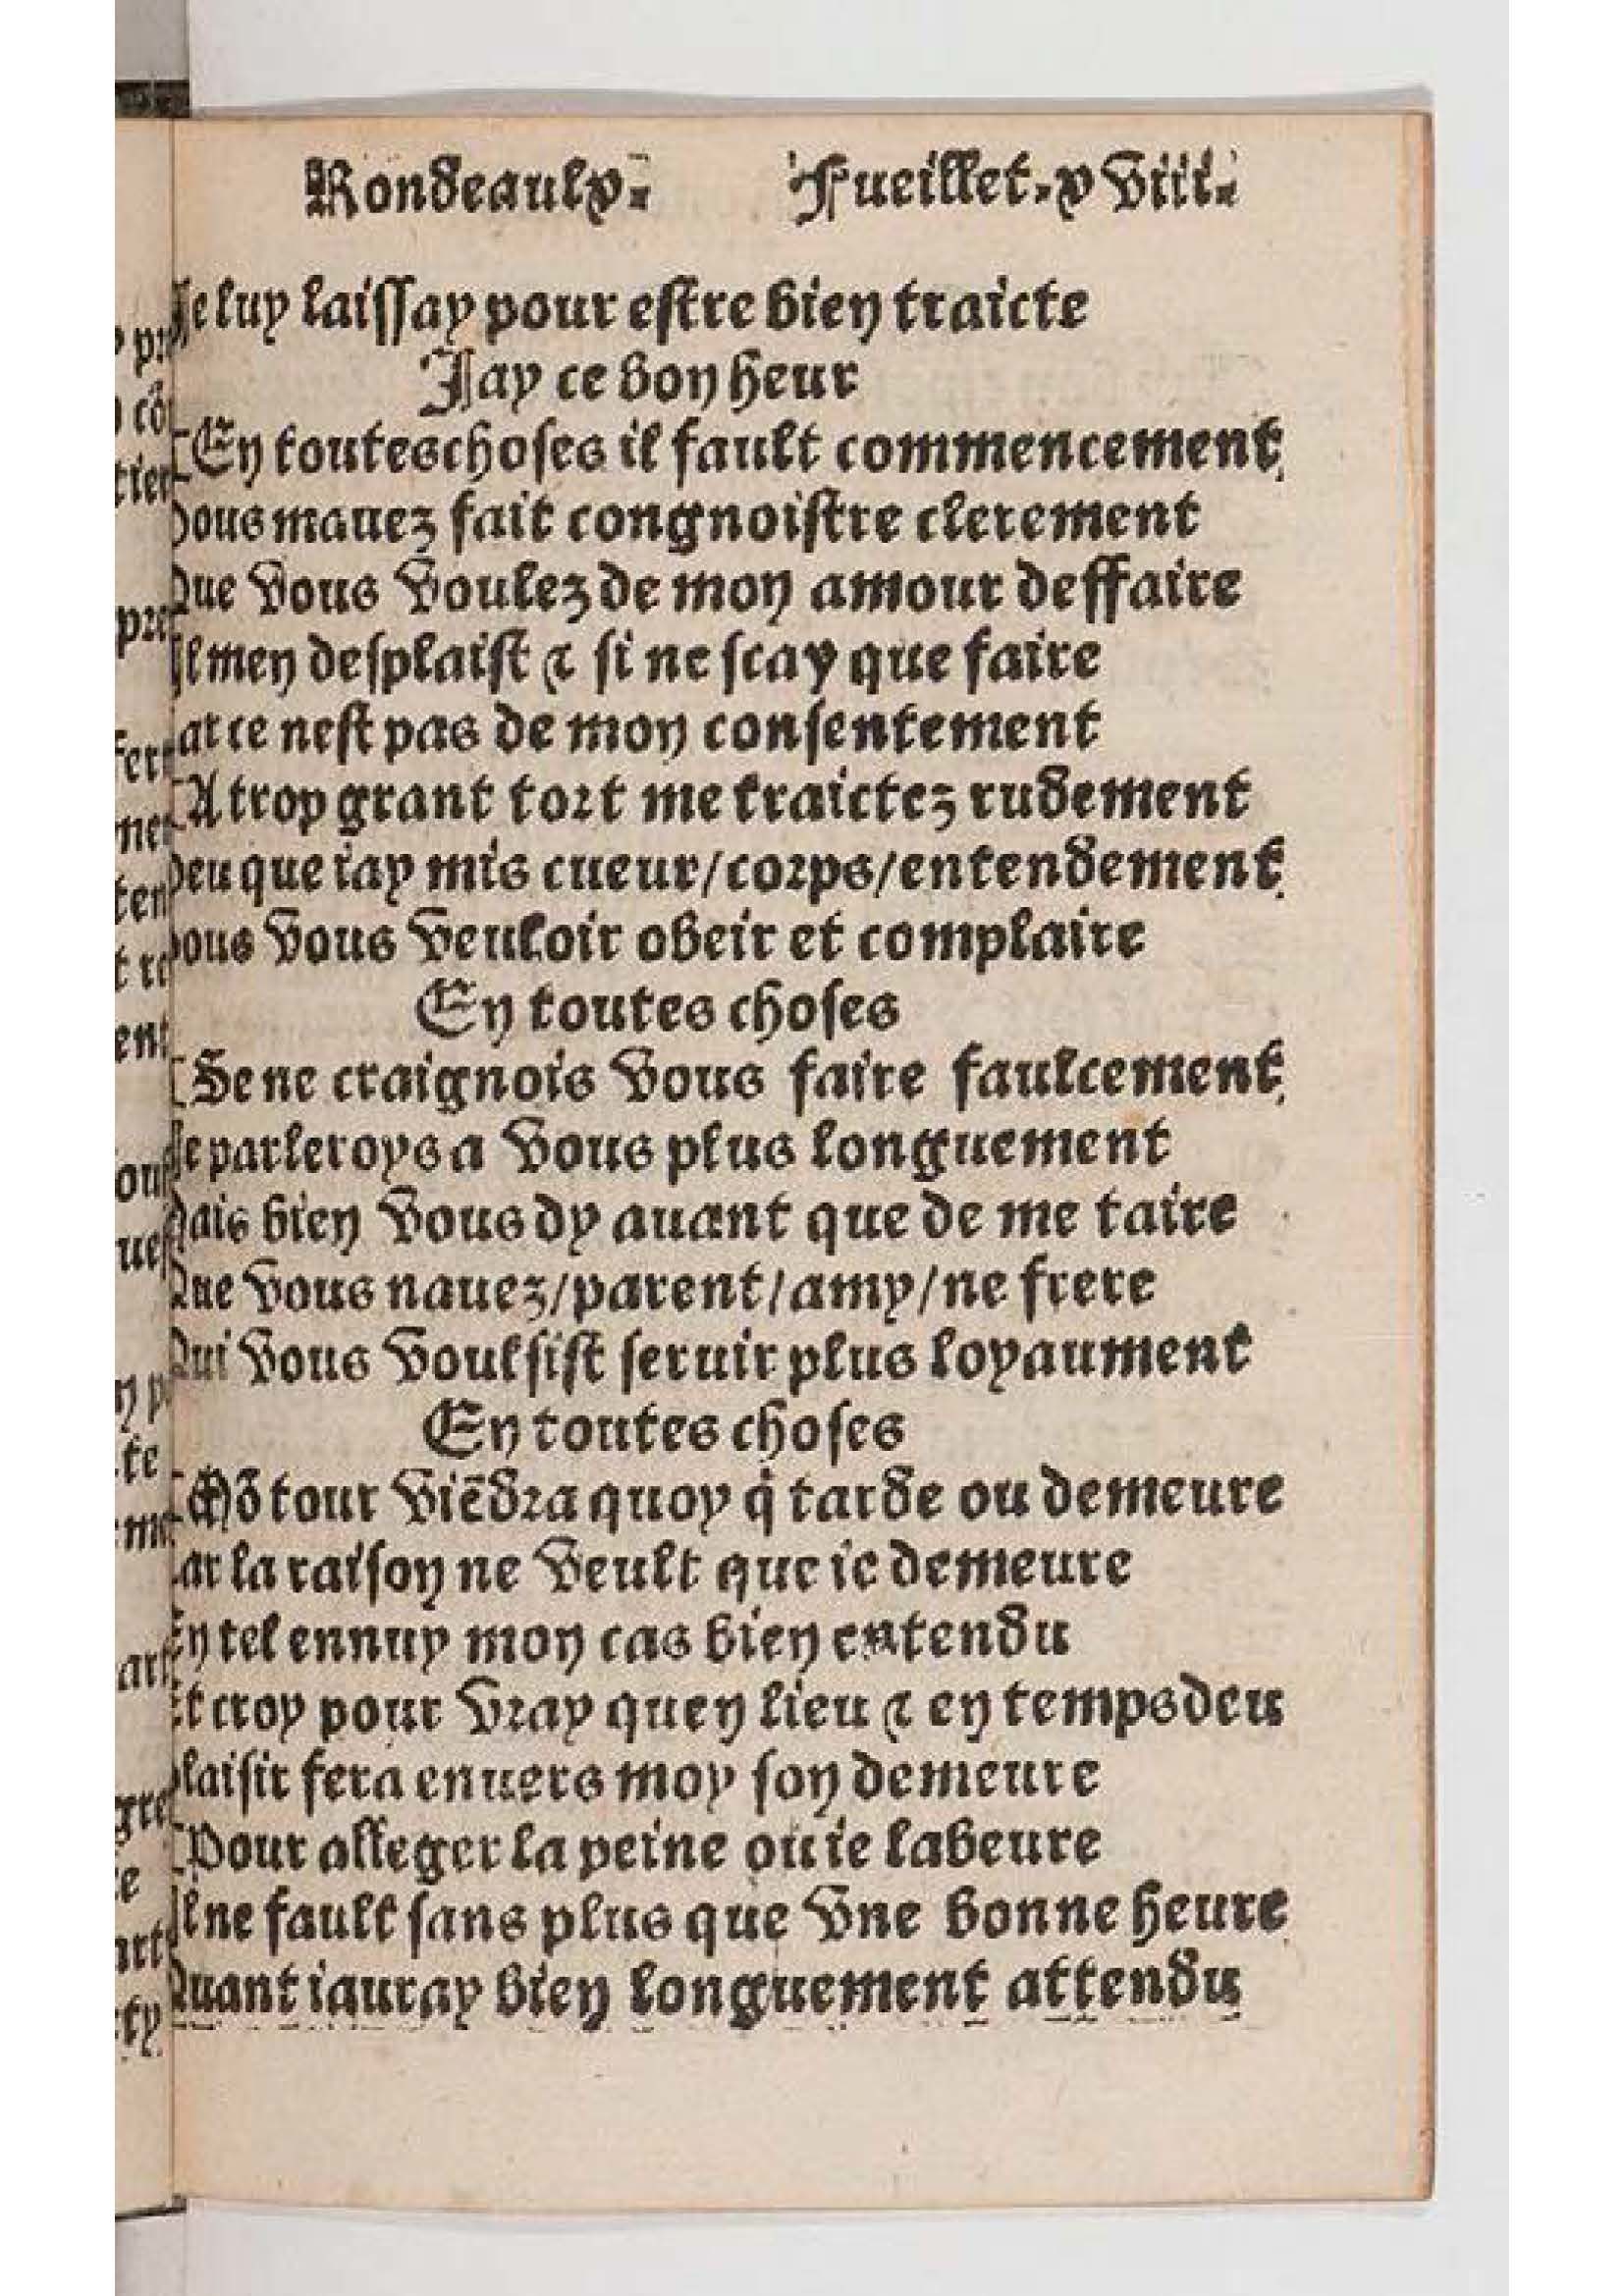 Rondeaulx. Fueillet. xviii.
Je luy laissay pour estre bien traicte
Jay ce bon heur
En touteschoses il fault commencement
vous mauez fait congnoistre clerement
Que vous voulez de mon amour deffaire
Il men desplaist & si ne scay que faire
Car ce nest pas de mon consentement
A trop grant tort me traictez rudement
Veu que iay mis cueur/corps/entendement
vous vous veuloir obeir et complaire
En toutes choses
Se ne craignois vous faire faulcement
Je parleroys a vous plus longuement
Mais bien vous dy auant que de me taire
Que vous nauez/parent/amy/ne frere
Qui vous voulsist seruir plus loyaument
En toutes choses
Mō tour viēdra quoy q̇ tarde ou demeure
Car la raison ne veult que ie demeure
En tel ennuy mon cas bien entendu
Et croy pour vray quen lieu & en temps deu
Plaisir fera enuers moy son demeure
Pour alleger la peine ou ie labeure
Il ne fault sans plus que vne bonne heure
Quant iauray bien longuement attendu